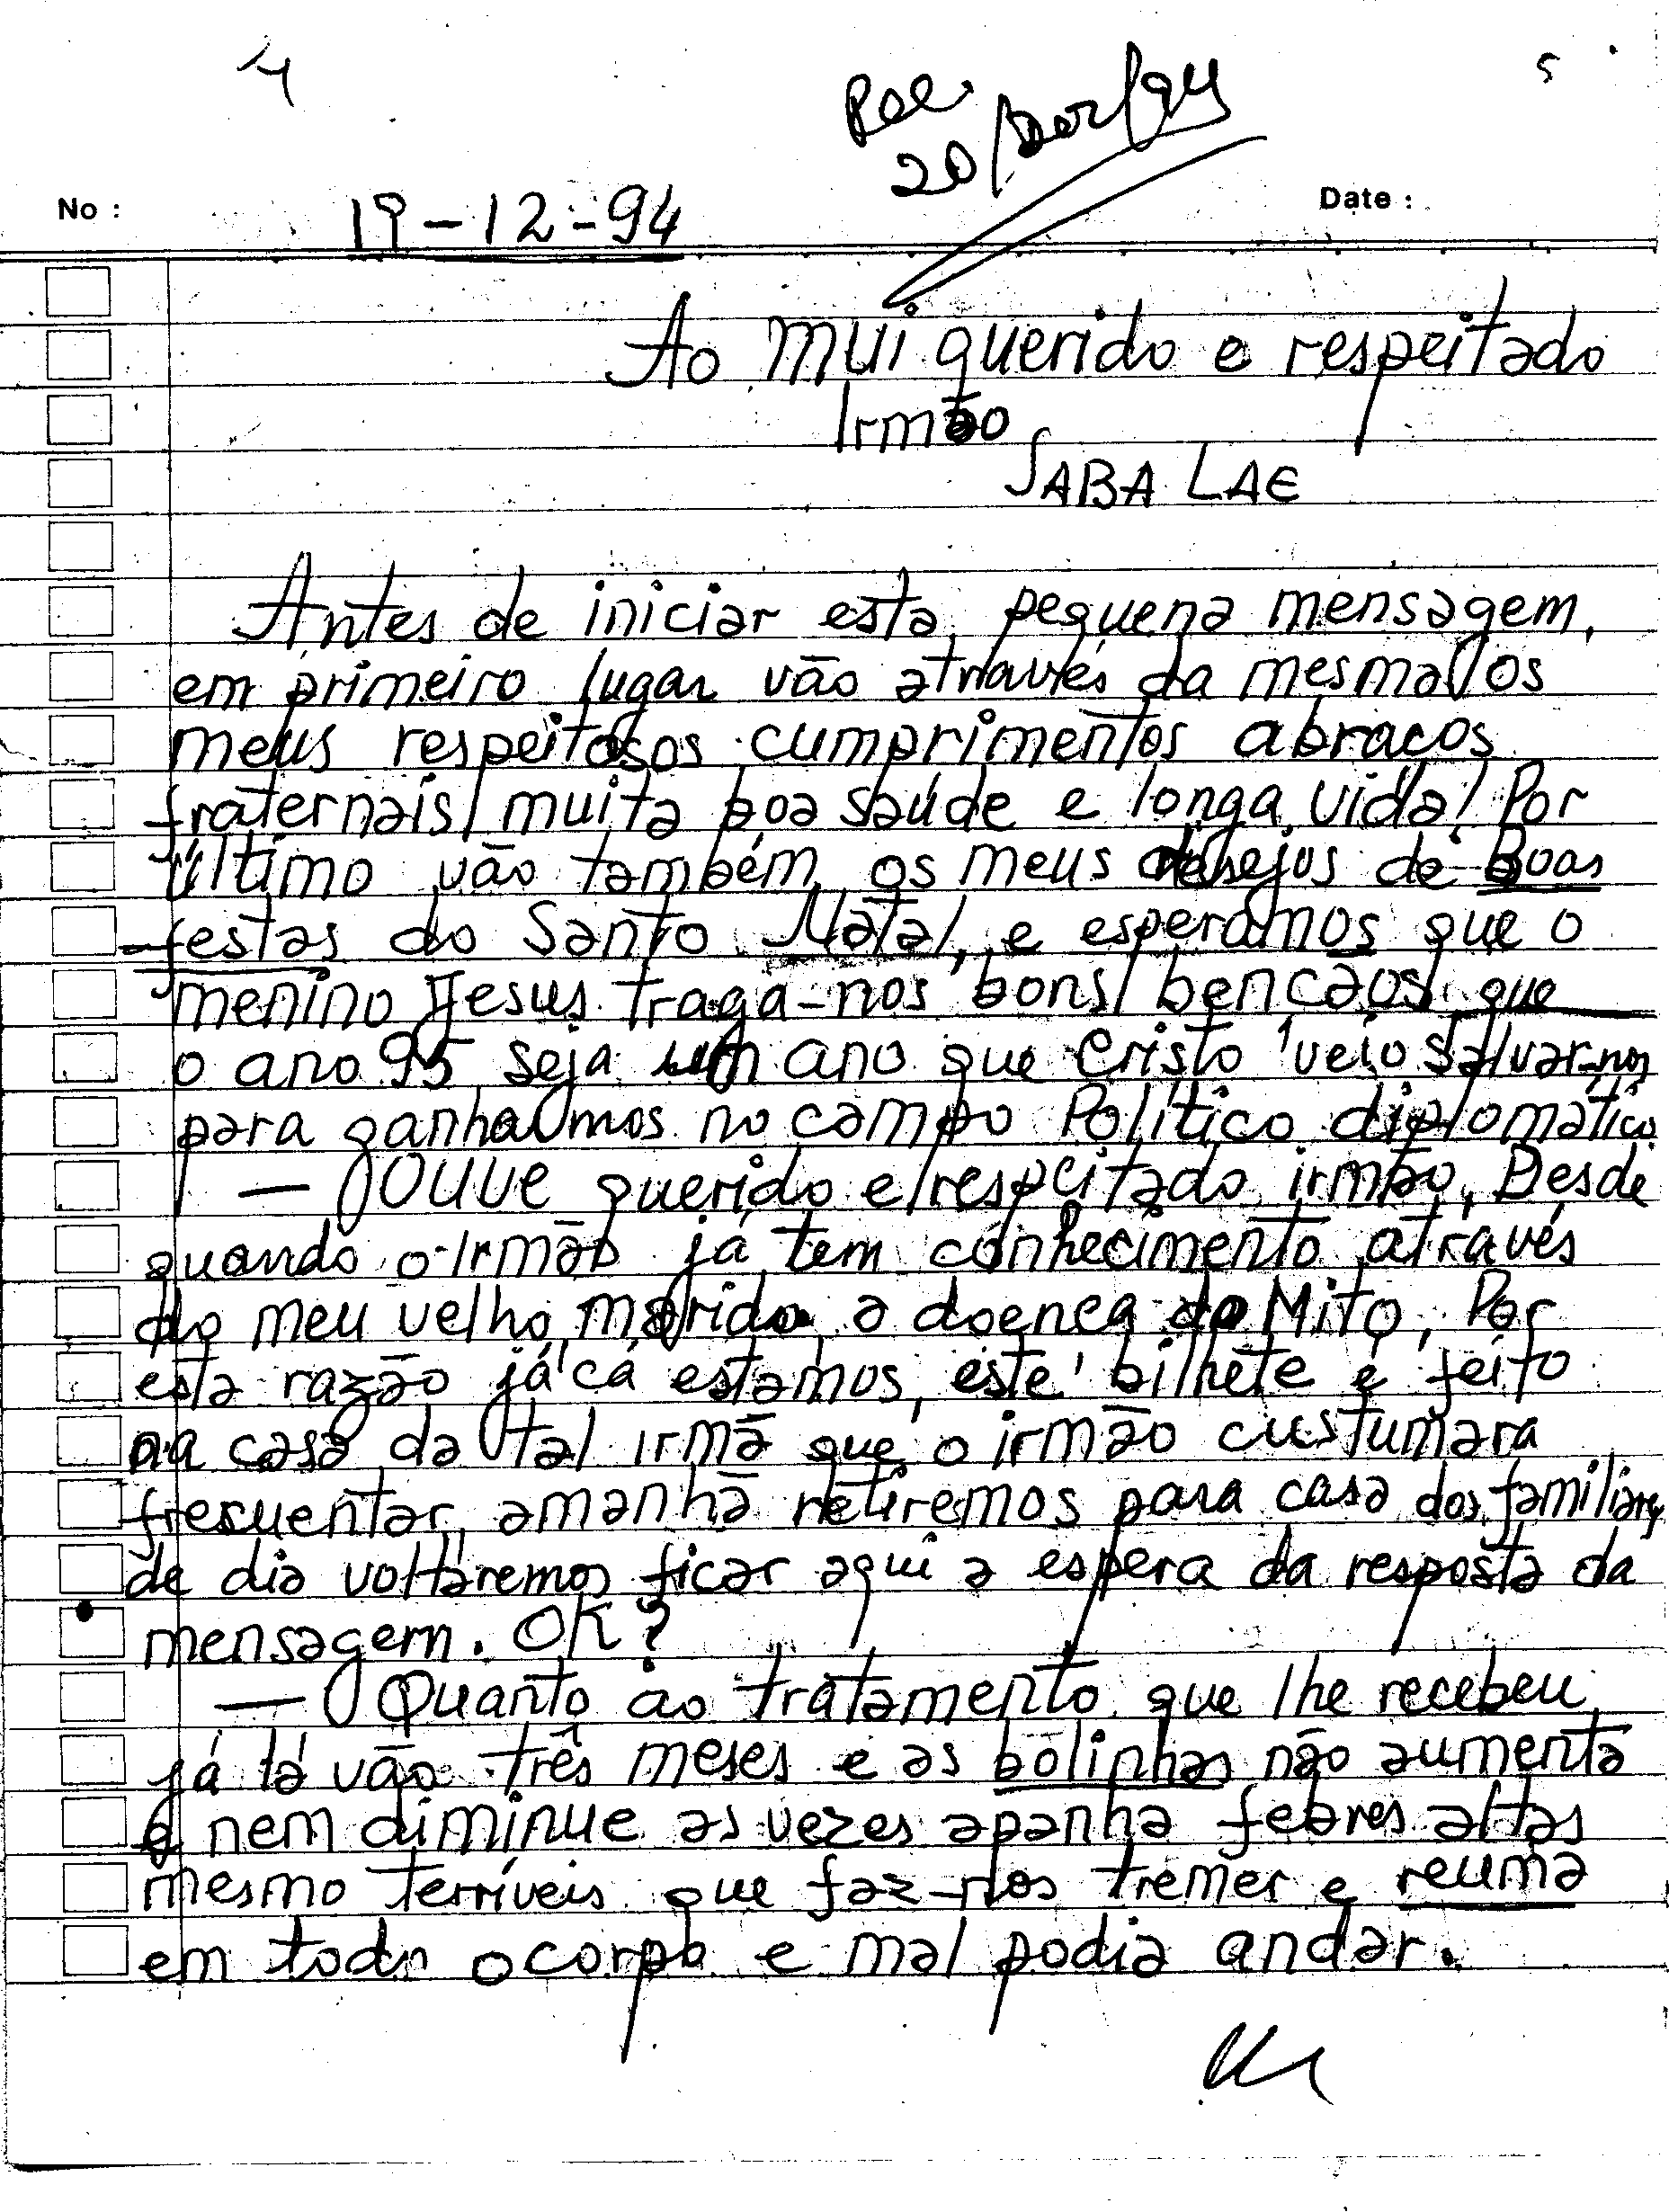 4
5
Rec
20/Dez/94
No :
19-12-94
Date :
Ao mui querido e respeitado
Irmão
SABA LAE
Antes de iniciar esta, pequena mensagem,
em primeiro lugar vão através da mesma os
meus respeitosos cumprimentos abraços
fraternais, muita boa saúde e longa vida! Por
último vão também os meus desejos de Boas
festas do Santo Natal, e esperamos que o
menino Jesus traga-nos bons bençãos, que
o ano 95 seja um ano que Cristo veio salvar-nos
para ganharmos no campo Político diplomático.
— Ouve querido e respeitado irmão, Desde
quando o Irmão já tem conhecimento através
do meu velho marido a doença do Mito, Por
esta razão já cá estamos, este bilhete é feito
na casa da tal irmã que o irmão custumara
frequentar, amanhã retiremos para casa dos familiares
de dia voltaremos ficar aqui a espera da resposta da
mensagem. OK?
— Quanto ao tratamento que lhe recebeu
já lá vão três meses e as bolinhas não aumenta
e nem diminue as vezes apanha febres altas
mesmo terríveis que faz-nos tremer e reuma
em todo o corpo e mal podia andar.